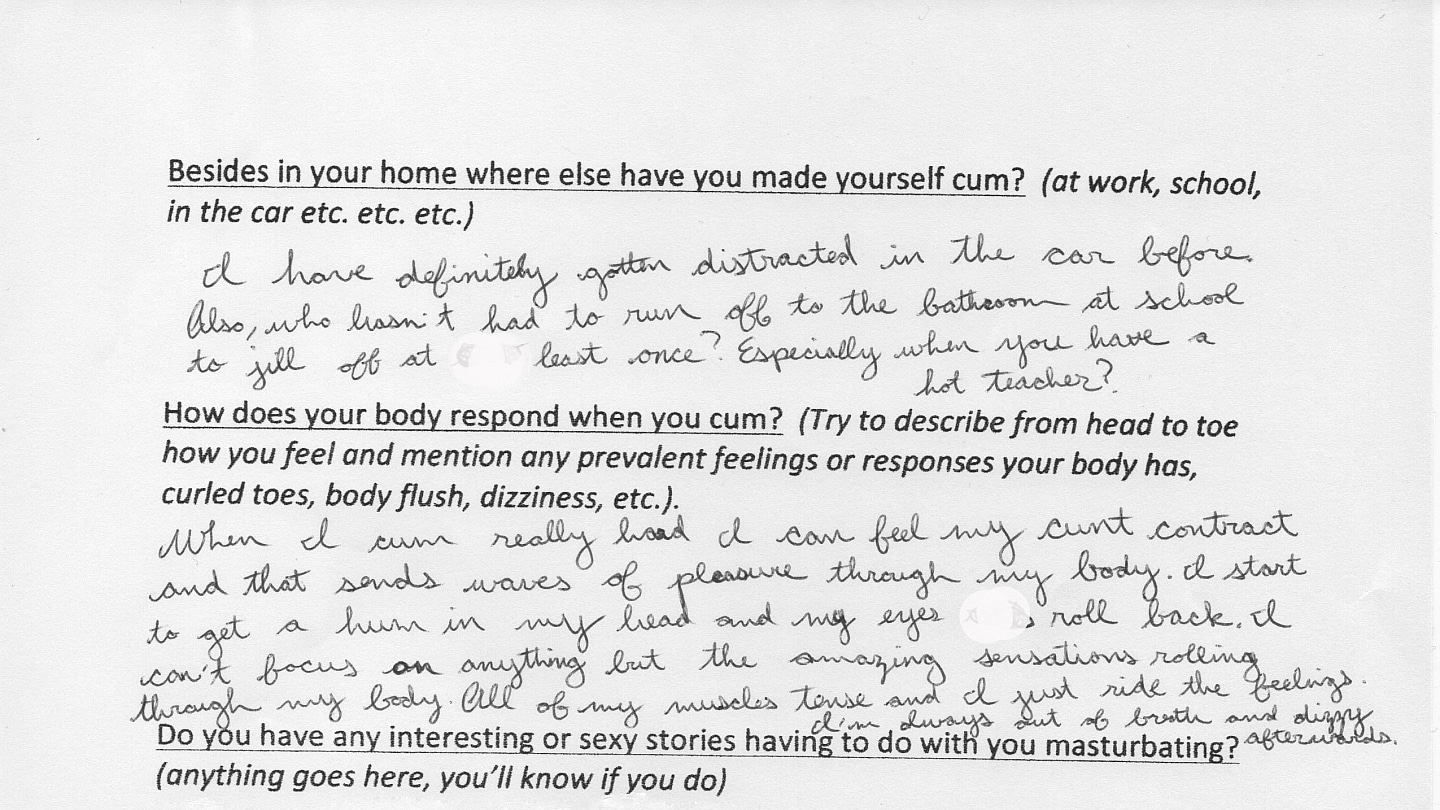 Besides in your home where else have you made yourself cum? (at work, school,
in the car etc. etc. etc.)
I have definitely gotten distracted in the car before.
Also, who hasn't had to run off to the bathroom at school
to jill off at least once? Especially when you have a
hot teacher?
How does your body respond when you cum? (Try to describe from head to toe
how you feel and mention any prevalent feelings or responses your body has,
curled toes, body flush, dizziness, etc.).
When I cum really hard I can feel my cunt contract
and that sends waves of pleasure through my body. I start
to get a hum in my head and my eyes roll back. I
can't focus on anything but the amazing sensations rolling
through my body. All of my muscles tense and I just ride the feelings.
I'm always out of breath and dizzy
afterwards.
Do you have any interesting or sexy stories having to do with you masturbating?
(anything goes here, you'll know if you do)